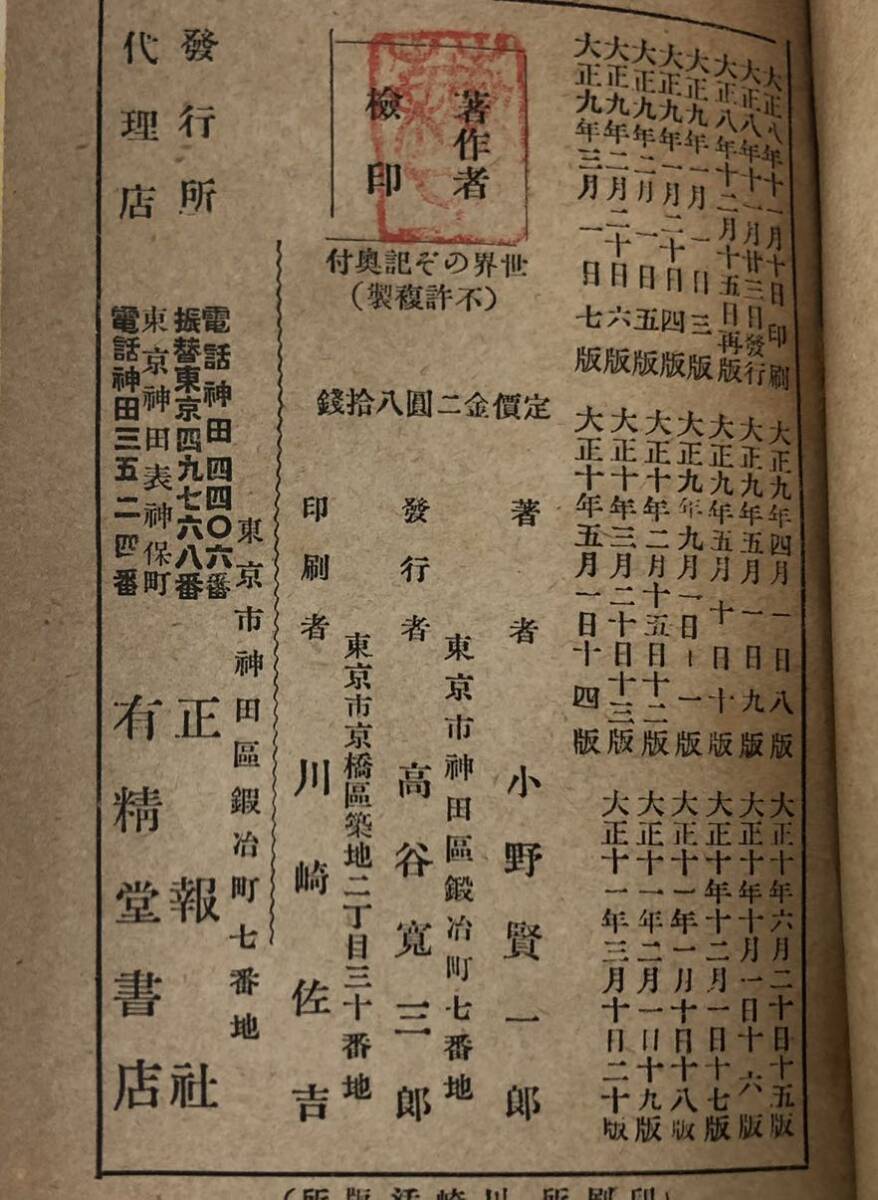 大正八年十一月十日印刷
大正八年十一月廿三日發行
大正八年十二月十五日再版
大正九年一月一日三版
大正九年一月二十日四版
大正九年二月一日五版
大正九年二月二十日六版
大正九年三月一日七版
大正九年四月一日八版
大正九年五月一日九版
大正九年五月十日十版
大正九年九月一日十一版
大正十年二月十五日十二版
大正十年三月二十日十三版
大正十年五月一日十四版
大正十年六月二十日十五版
大正十年十月一日十六版
大正十年十二月一日十七版
大正十一年一月十日十八版
大正十一年二月一日十九版
大正十一年三月十日二十版
著作者
檢印
世界のぞ記奧付
(不許複製)
定價金二圓八拾錢
著者 小野賢一郎
東京市神田區鍛冶町七番地
發行者 高谷寬三郎
東京市京橋區築地二丁目三十番地
印刷者 川崎佐吉
東京市神田區鍛冶町七番地
發行所 正報社
電話神田四四〇六番
振替東京四九七六八番
東京神田表神保町
代理店 有精堂書店
電話神田三五二四番